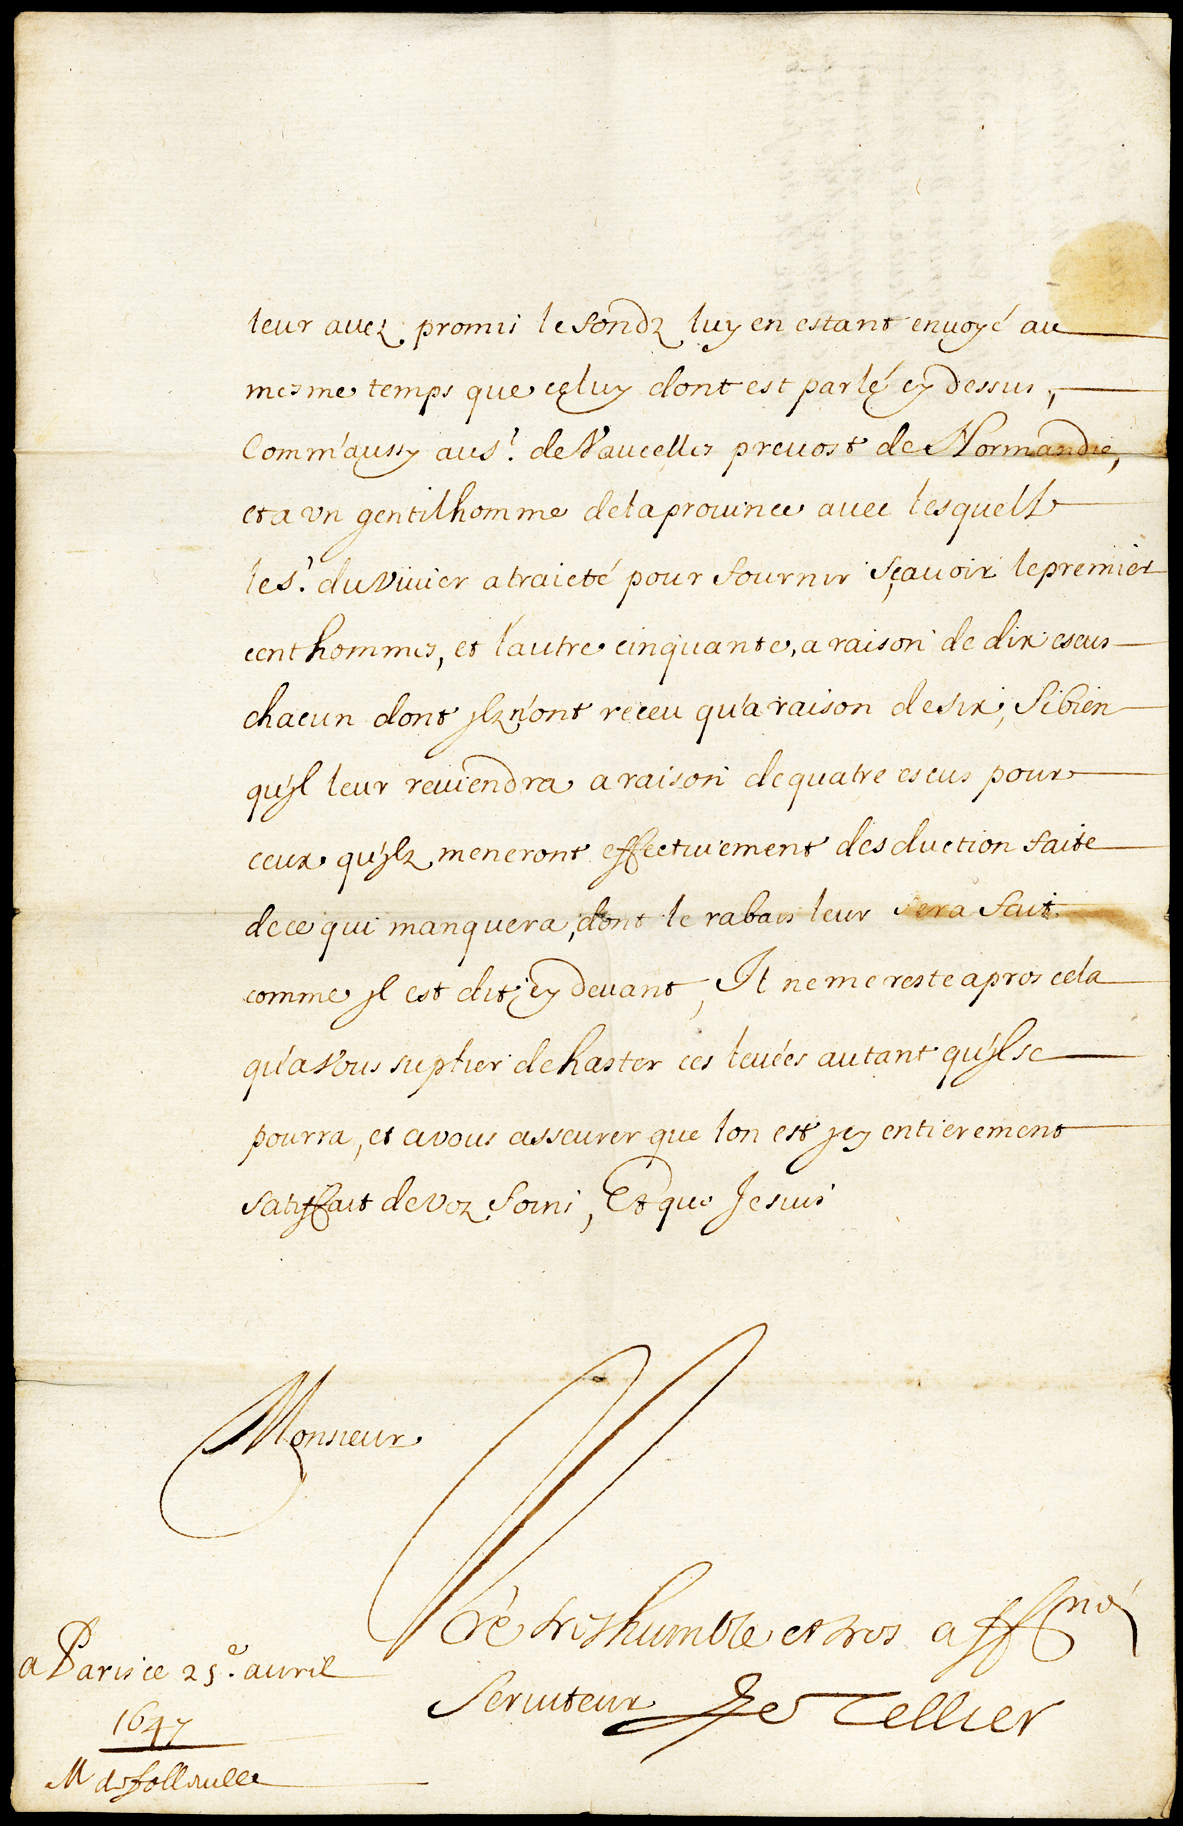 leur avez promis le fondz luy en estant envoyé au
mesme temps que celuy dont est parlé cy dessus,
Comm'aussy au Sr. de Vaucelles prevost de Normandie,
et a vn gentilhomme de la prouince auec lesquelz
le Sr. du Viuier a traicté pour fournir sçauoir le premier
cent hommes, et l'autre cinquante, a raison de dix escus
chacun dont jlz n'ont receu qu'a raison de six, si bien
qu'jl leur reuiendra a raison de quatre escus pour
ceux qu'jlz meneront effectiuement desduction faite
de ce qui manquera, dont le rabais leur sera fait
comme jl est dit cy deuant, Il ne me reste apres cela
qu'a Vous suplier de haster ces leuées autant qu'jl se
pourra, et a vous asseurer que lon est jcy entierement
satisffait de voz soins, Et que Je suis
Monsieur
Vre tres humble et tres affnné
seruiteur Le Tellier
a Paris ce 25e. auril
1647
M de folleuille